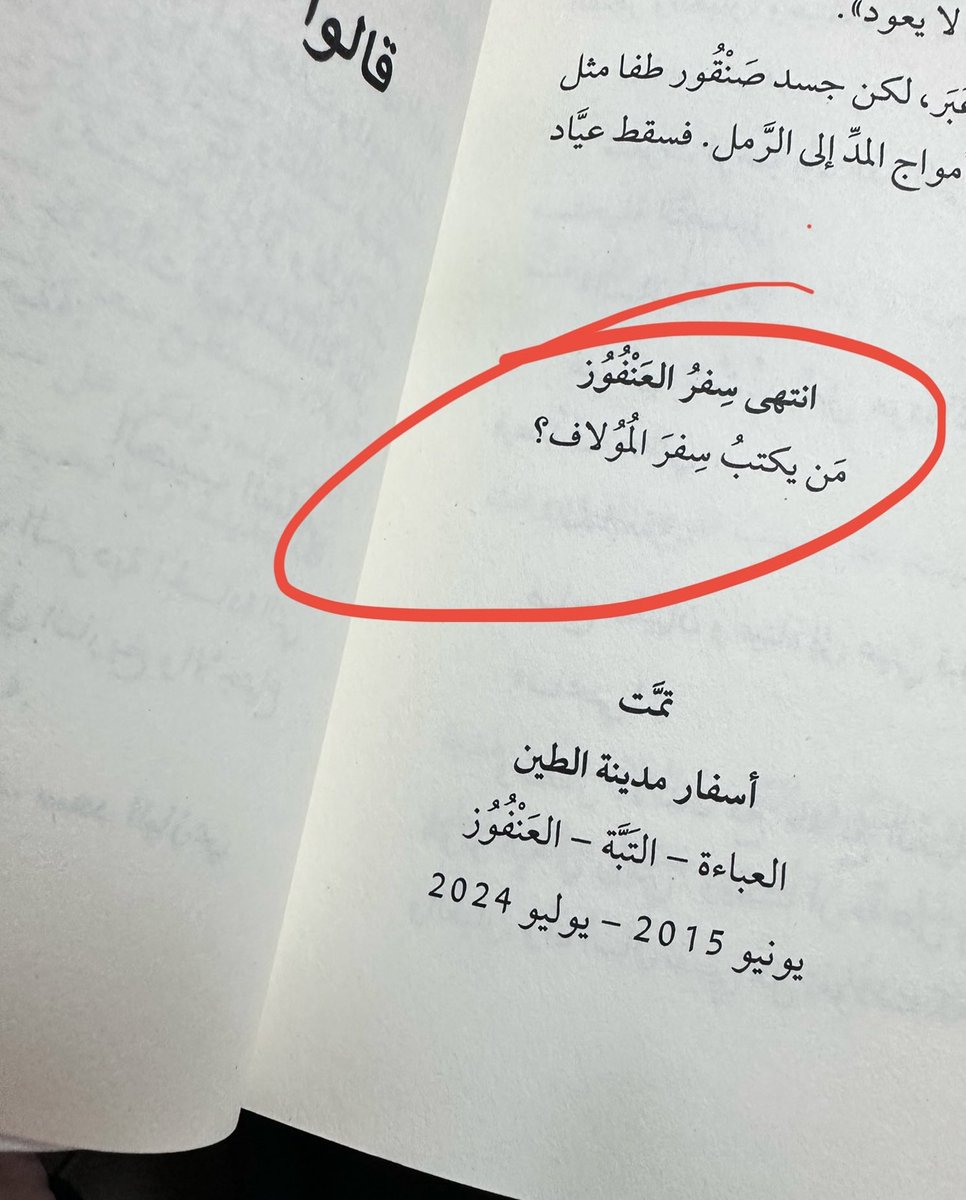 لا يعود».
عَبَر، لكن جسد صَنْقُور طفا مثل
أمواج المدِّ إلى الرَّمل. فسقط عيَّاد
انتهى سِفرُ العَنْفُوُز
مَن يكتبُ سِفرَ المُوُلاف؟
تمَّت
أسفار مدينة الطين
العباءة – التَبَّة – العَنْفُوُز
يونيو 2015 – يوليو 2024
قالوا